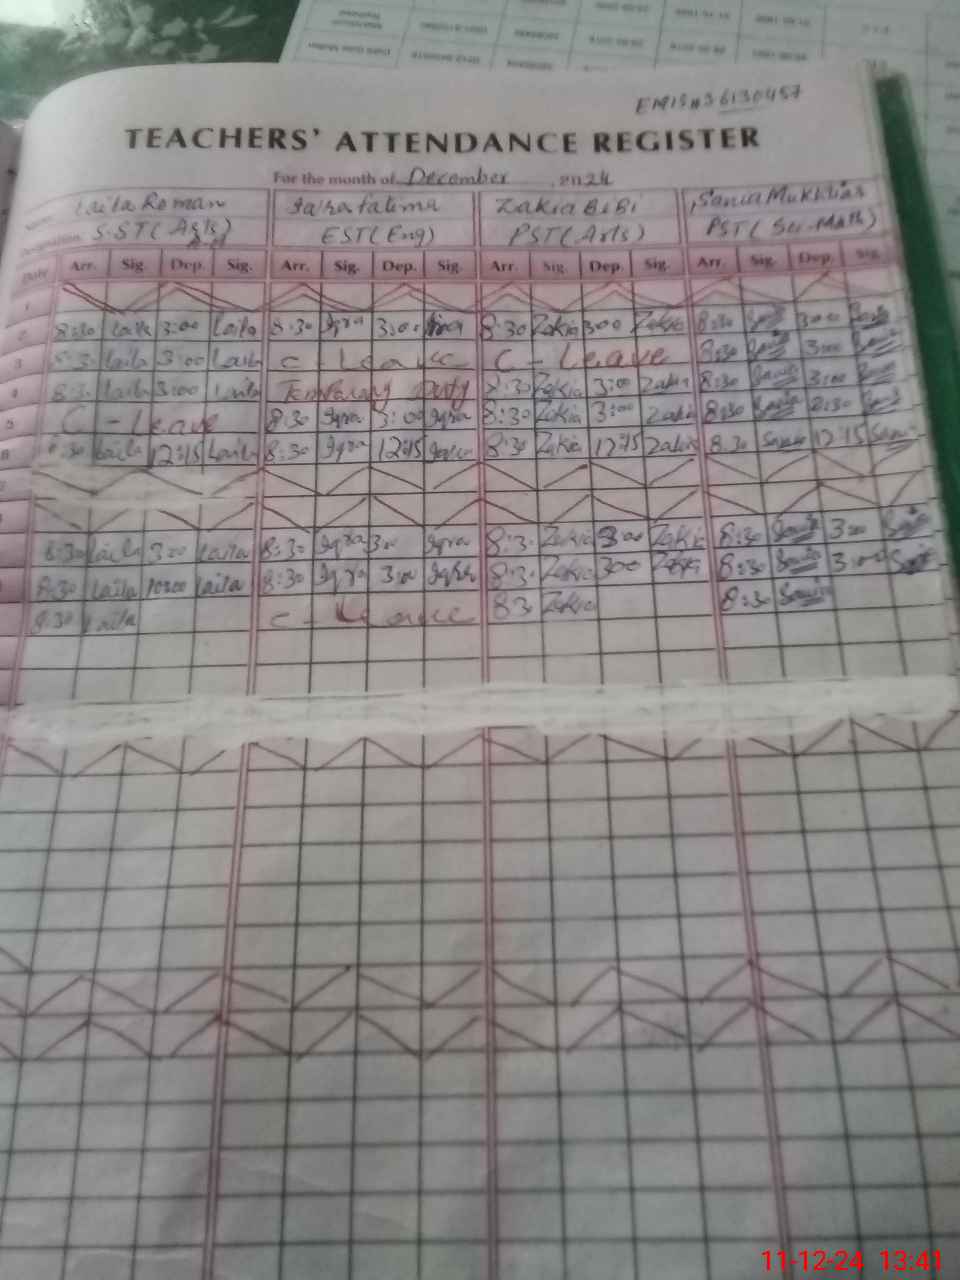 EMIS#36130457
TEACHERS' ATTENDANCE REGISTER
For the month of December, 2024
Laila Roman Iqra Fatima Zakia BiBi Sania Mukhtiar
Designation S.ST (Arts) EST (Eng) PST (Arts) PST (Sci-Math)
Date Arr. Sig. Dep. Sig. Arr. Sig. Dep. Sig. Arr. Sig. Dep. Sig. Arr. Sig. Dep. Sig.
1
2 8:30 Laila 3:00 Laila 8:30 Iqra 3:00 Iqra 8:30 Zakia 3:00 Zakia 8:30 Sania 3:00 Sania
3 8:30 Laila 3:00 Laila C - Leave C - Leave 8:30 Sania 3:00 Sania
4 8:30 Laila 3:00 Laila Temporary Duty 8:30 Zakia 3:00 Zakia 8:30 Sania 3:00 Sania
5 C - Leave 8:30 Iqra 3:00 Iqra 8:30 Zakia 3:00 Zakia 8:30 Sania 2:30 Sania
6 8:30 Laila 12:15 Laila 8:30 Iqra 12:15 Iqra 8:30 Zakia 12:15 Zakia 8:30 Sania 12:15 Sania
7
8:30 Laila 3:00 Laila 8:30 Iqra 3:00 Iqra 8:3 Zakia 3:00 Zakia 8:30 Sania 3:00 Sania
8:30 Laila 10:00 Laila 8:30 Iqra 3:00 Iqra 8:3 Zakia 3:00 Zakia 8:30 Sania 3:00 Sania
8:30 Laila C - Leave 8:3 Zakia 8:30 Sania
11-12-24 13:41